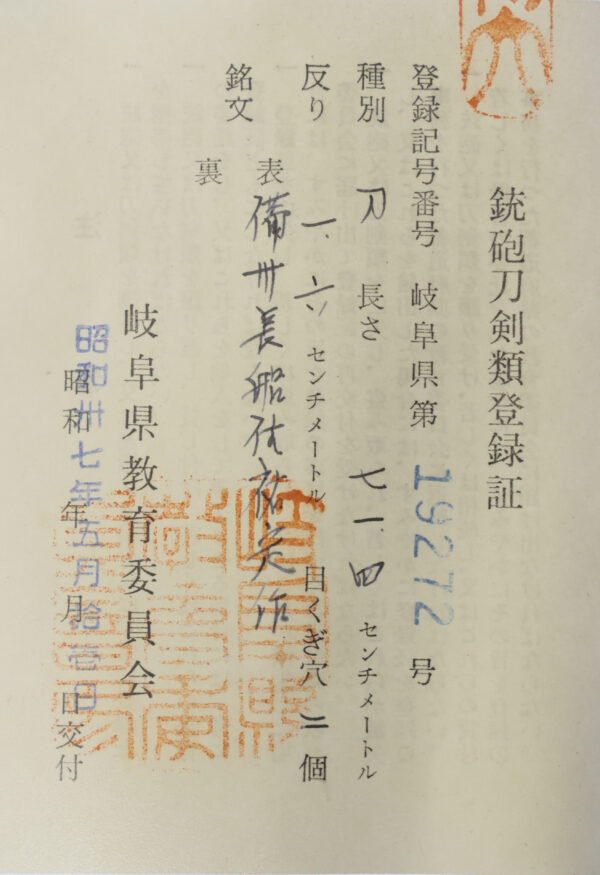 銃砲刀剣類登録証
登録記号番号 岐阜県第 19272 号
種別 刀 長さ 七一、四 センチメートル
反り 一、六 センチメートル 目くぎ穴 二 個
銘文 表 備州長船住祐定作
裏
岐阜県教育委員会
昭和 年 月 日交付
昭和卅七年五月拾壱日